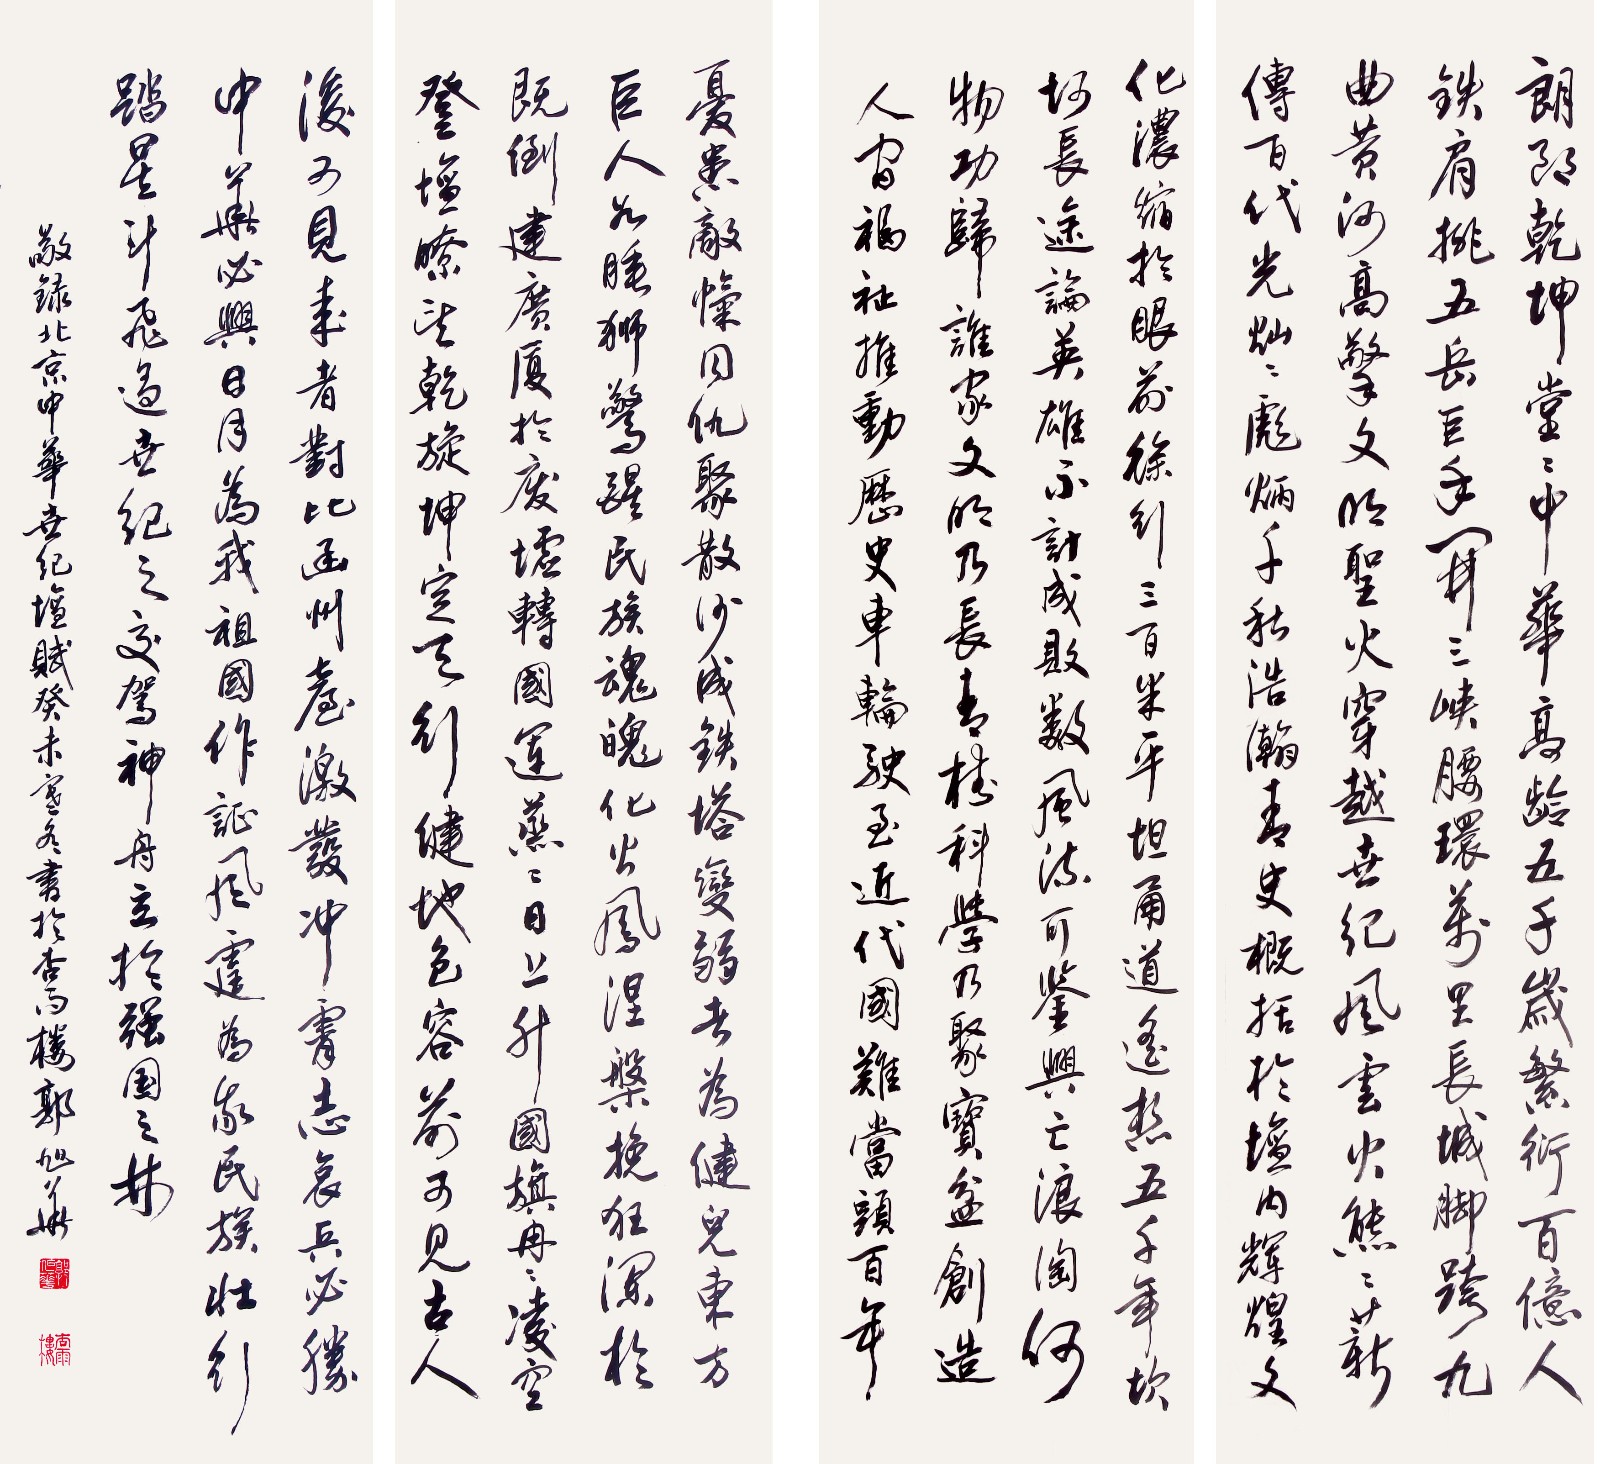 朗朗乾坤堂堂中華高齡五千歲繁衍百億人
鉄肩挑五岳巨手開三峽腰環萬里長城脚跨九
曲黄河高擎文明聖火穿越世紀風雲火熊熊薪
傳百代光灿灿彪炳千秋浩瀚青史概括於壇内輝煌文
化濃縮於眼前徐行三百米平坦甬道遙想五千年坎
坷長途論英雄不計成敗数風流可鑒興亡浪淘何
物功歸誰家文明乃長青樹科學乃聚寶盆創造
人间福祉推動歷史車輪駛至近代國難當頭百年
憂患敵愾同仇聚散沙成鉄塔變弱者為健兒東方
巨人如睡獅驚醒民族魂魄化火鳳涅槃挽狂瀾於
既倒建廣厦於废墟轉國運蒸蒸日上升國旗冉冉凌空
登壇瞭望乾旋坤定天行健地色容前可見古人
後可見来者對比幽州臺激發冲霄志哀兵必勝
中華必興日月為我祖國作証風霆為我民族壮行
踏星斗飛過世紀之交駕神舟立於强國之林
敬録北京中華世紀壇賦癸未寒冬書於杏雨楼郭旭華
杏雨樓